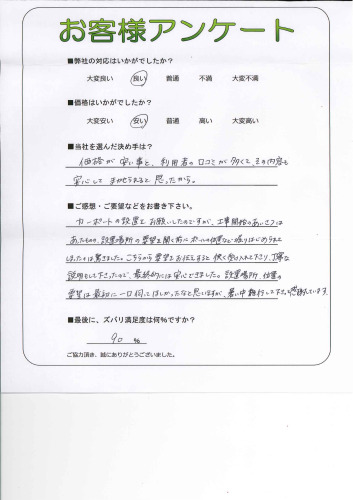 お客様アンケート
■弊社の対応はいかがでしたか？
大変良い 良い 普通 不満 大変不満
■価格はいかがでしたか？
大変安い 安い 普通 高い 大変高い
■当社を選んだ決め手は？
価格が安い事と、利用者の口コミが多くて、その内容も
安心してまかせられると思ったから。
■ご感想・ご要望などをお書き下さい。
カーポートの設置をお願いしたのですが、工事開始のあいさつは
あたものの、設置場所の要望を聞く前にポールの位置など掘りはじめられて
しまったのは驚きました。こちらから要望をお伝えすると快く受け入れて下さり、丁寧な
説明もして下さったので、最終的には安心できました。設置場所、位置の
要望は最初に一口伺ってほしかったなと思いますが、暑い中施行して下さって感謝しています。
■最後に、ズバリ満足度は何％ですか？
90 %
ご協力頂き、誠にありがとうございました。